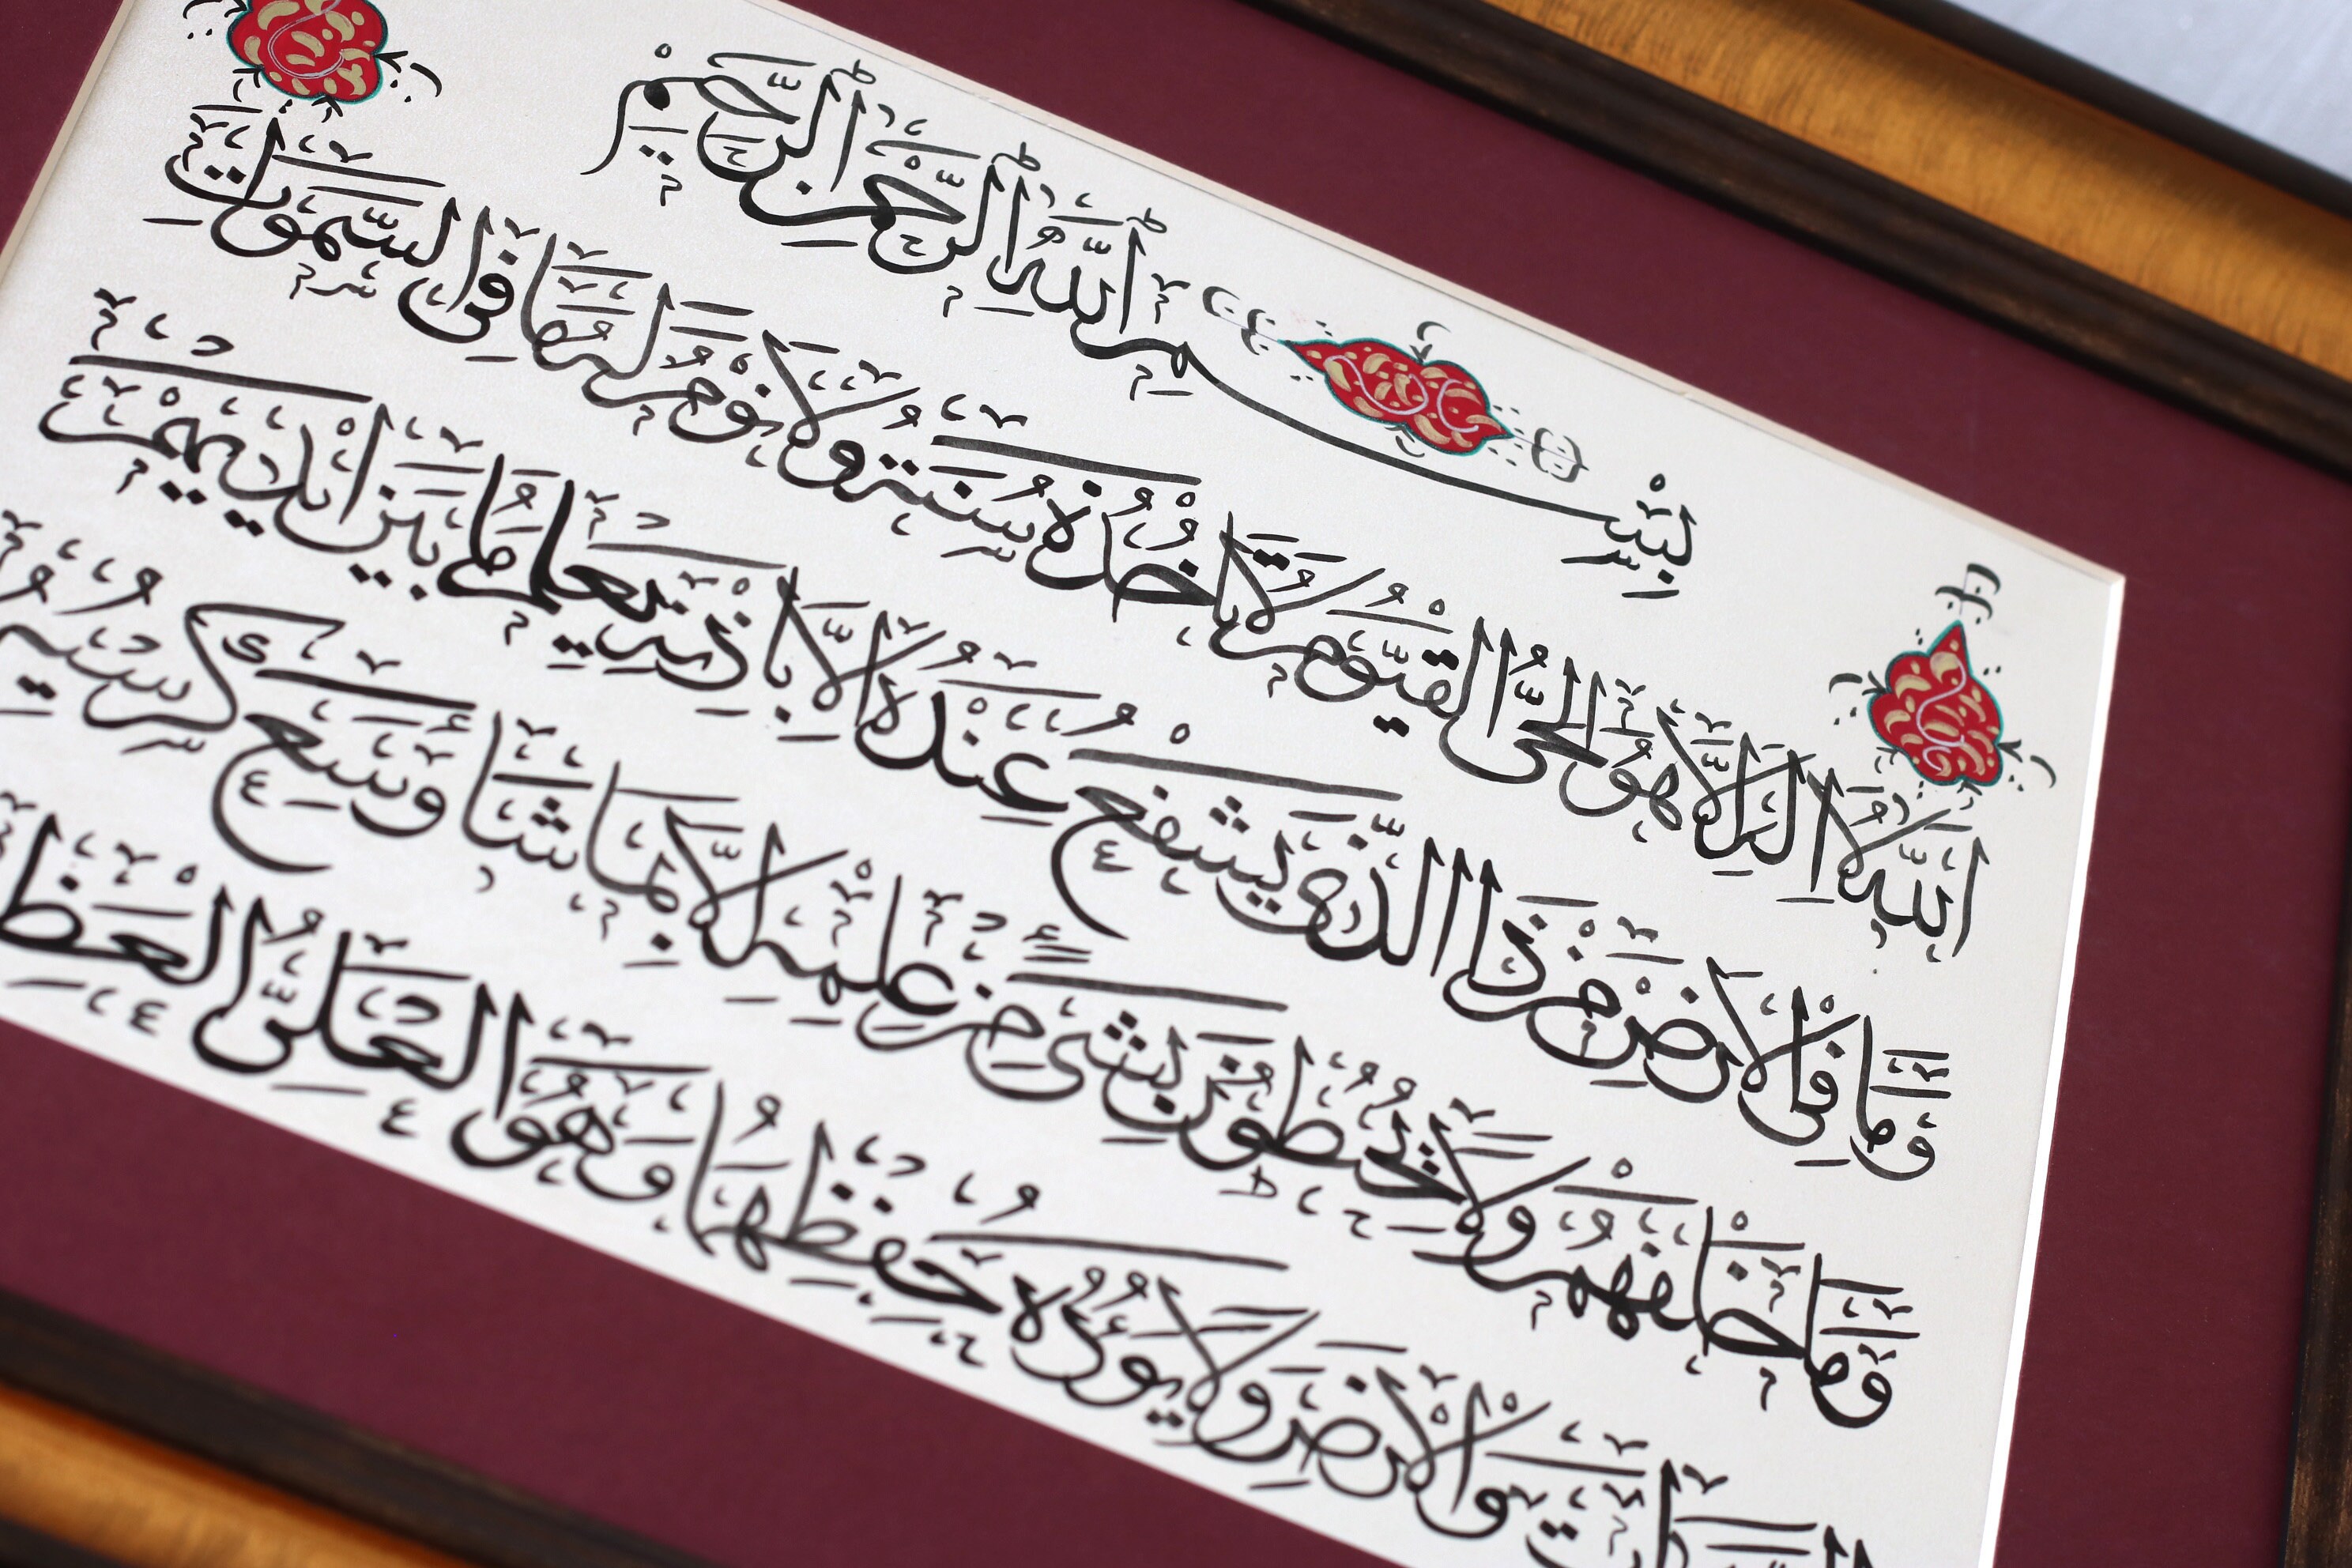 بِسْمِ اللّٰهِ الرَّحْمٰنِ الرَّحِيْمِ
اَللّٰهُ لَا اِلٰهَ اِلَّا هُوَ الْحَيُّ الْقَيُّوْمُ لَا تَاْخُذُهُ سِنَةٌ وَلَا نَوْمٌ لَهُ مَا فِي السَّمٰوَاتِ
وَمَا فِي الْاَرْضِ مَنْ ذَا الَّذِي يَشْفَعُ عِنْدَهُ اِلَّا بِاِذْنِهِ يَعْلَمُ مَا بَيْنَ اَيْدِيهِمْ
وَمَا خَلْفَهُمْ وَلَا يُحِيطُونَ بِشَيْءٍ مِنْ عِلْمِهِ اِلَّا بِمَا شَاءَ وَسِعَ كُرْسِيُّهُ
وَالْاَرْضَ وَلَا يَؤُدُهُ حِفْظُهُمَا وَهُوَ الْعَلِيُّ